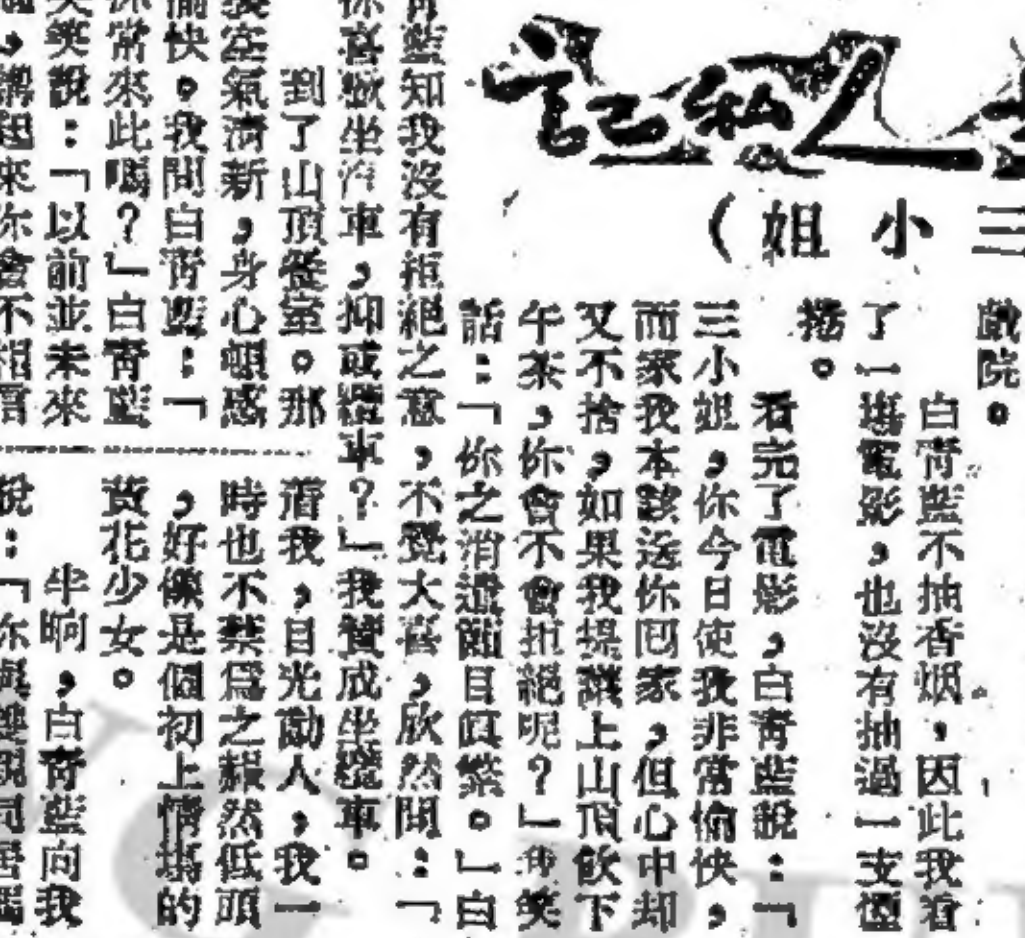 人私己言
三小姐）
戲院。
白青藍不抽香烟，因此我看
了一塲電影，也沒有抽過一支烟
捲。
看完了電影，白青藍說：「
三小姐，你今日使我非常愉快，
而家我本該送你囘家，但心中却
又不捨，如果我提議上山頂飲下
午茶，你會不會拒絕呢？」我笑
話：「你之消遣節目眞繁。」白
青藍知我沒有拒絕之意，不覺大喜，欣然問：「
你喜歡坐汽車，抑或纜車？」我贊成坐纜車。
到了山頂餐室。那
裏空氣淸新，身心頓感
愉快。我問白靑藍：「
你常來此嗎？」白青藍
笑笑說：「以前並未來
，講起來你會不相信
着我，目光動人，我一
時也不禁爲之赧然低頭
，好像是個初上情塲的
黃花少女。
半晌，白青藍向我
說：「你與